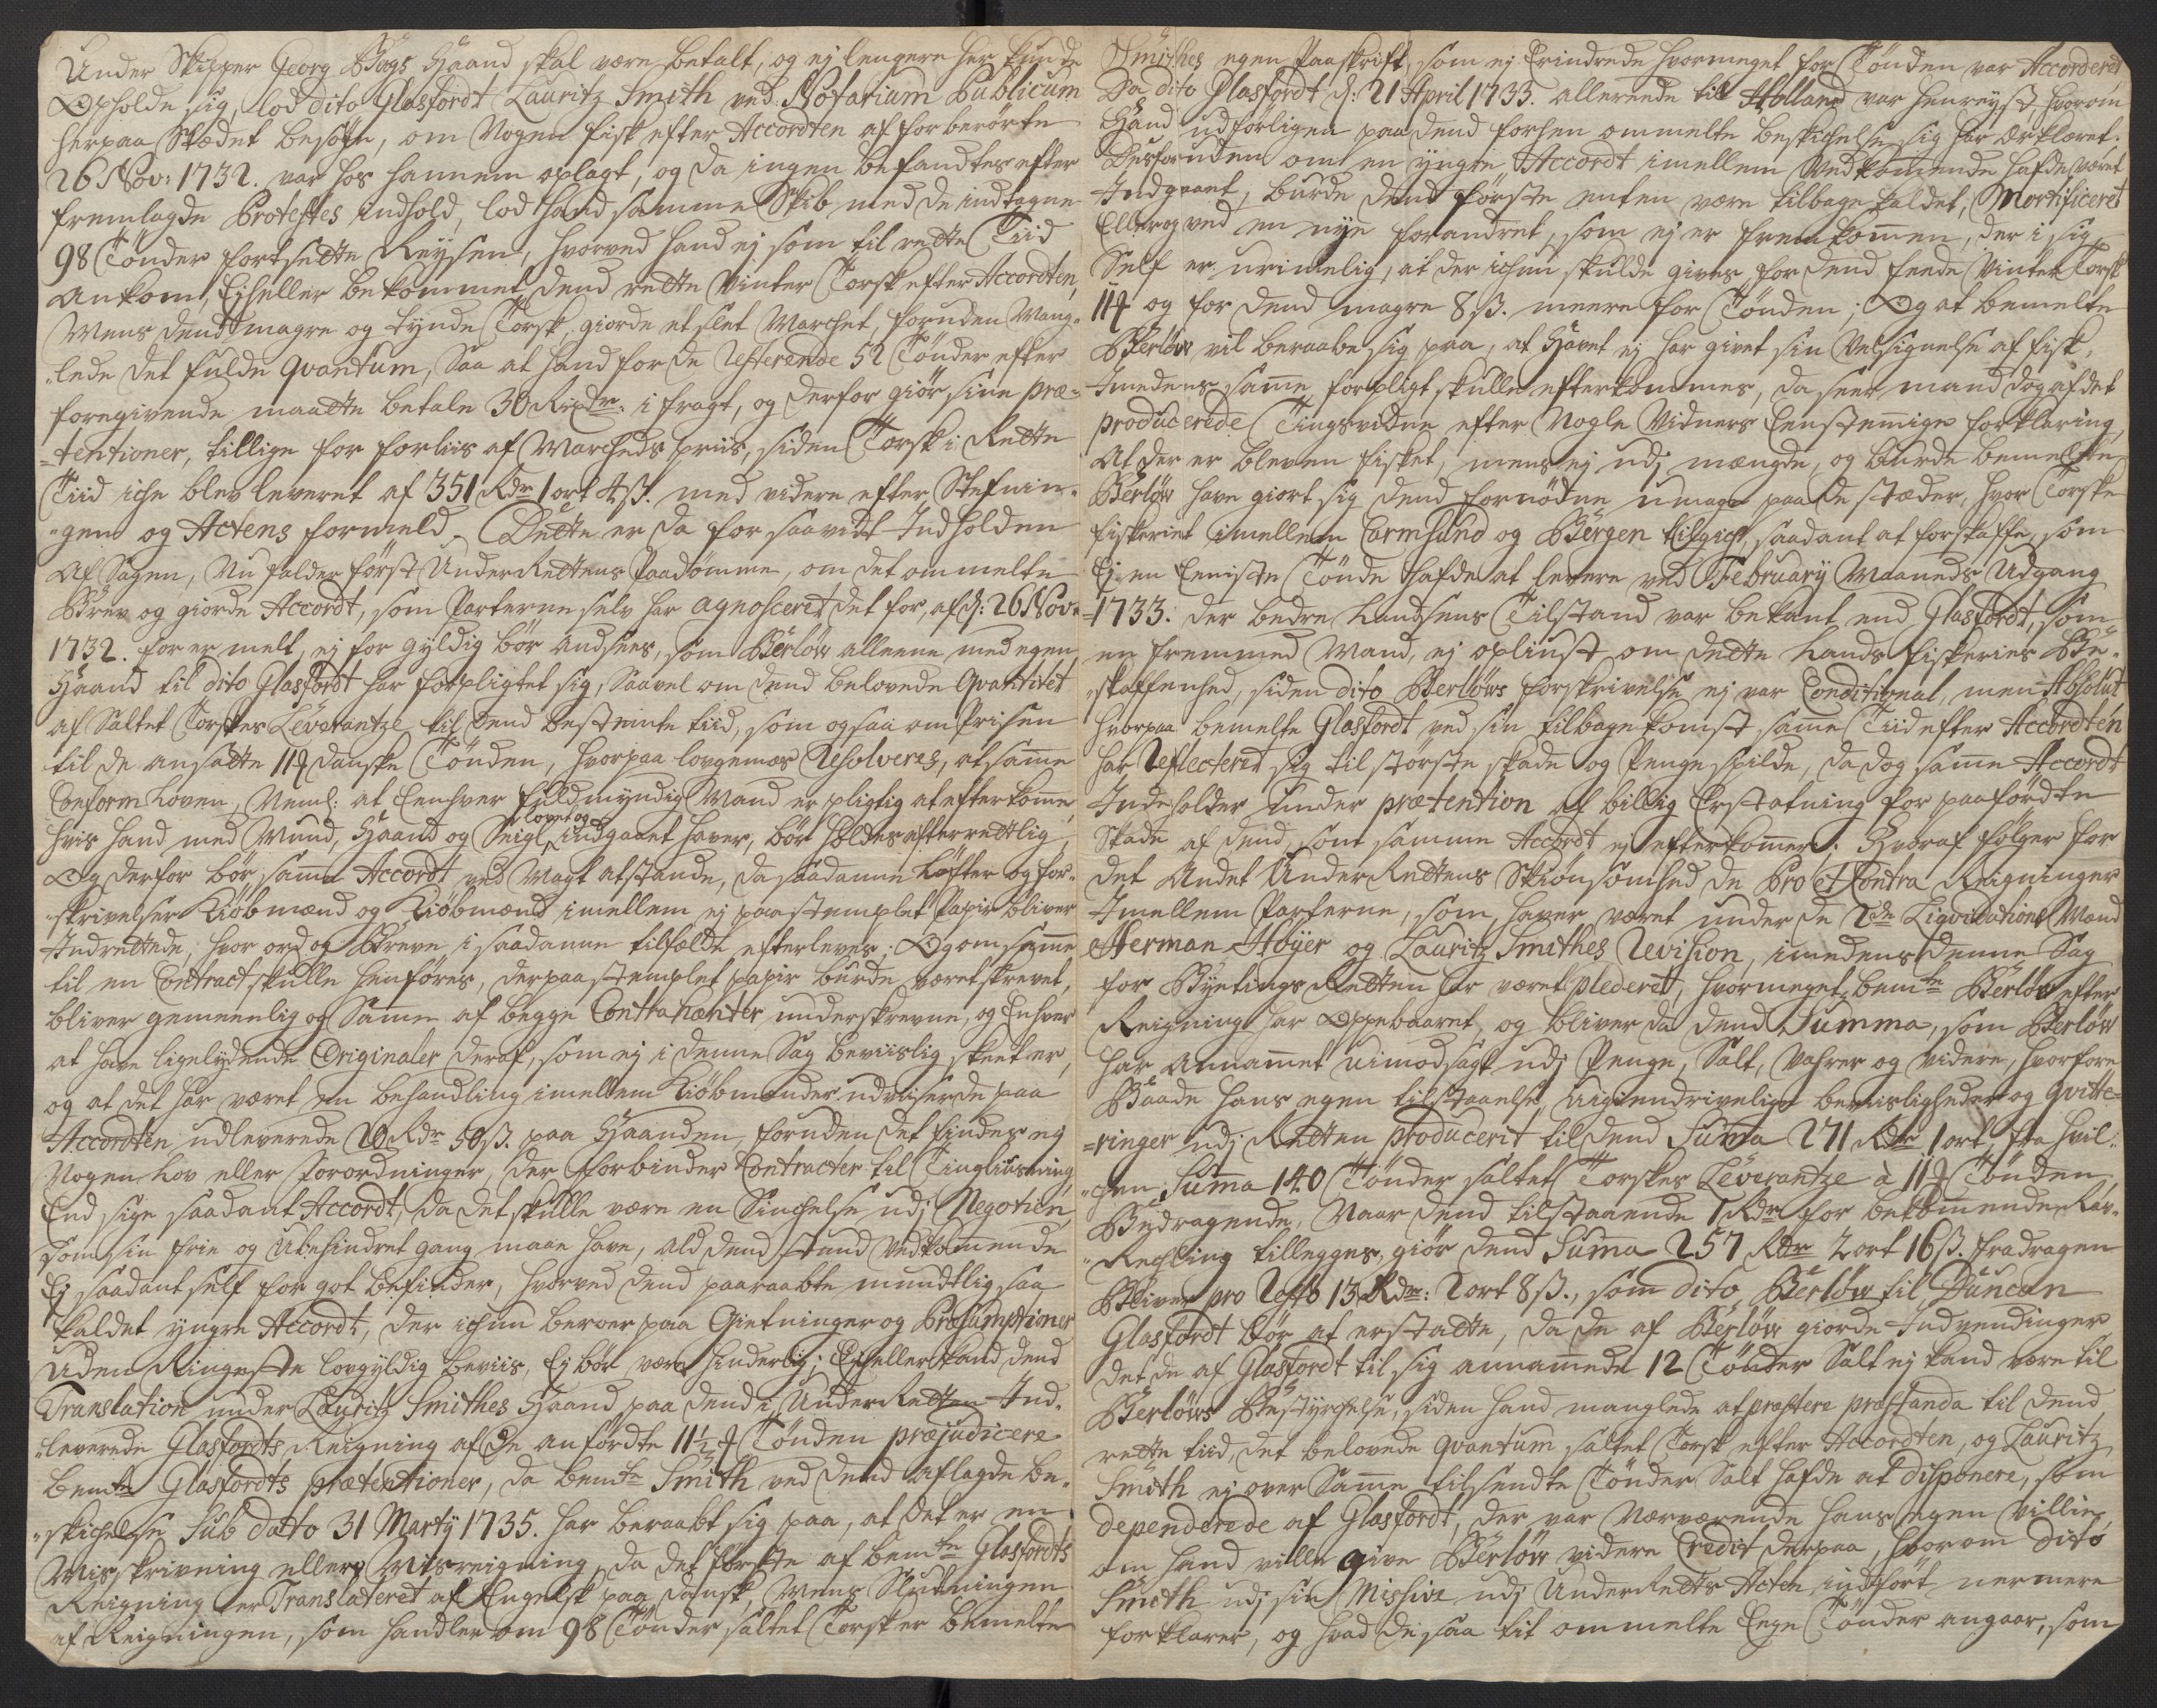 Under Skipper Georg Bogs Haand skal være betalt, og ej lengere her kunde
Opholde sig, lod dito Glasfordt Lauritz Smith ved Notarium Publicum
herpaa Stædet besøge, om Nogen fisk efter Accordten af forberørte
26 Nov: 1732. var hos hannem oplagt, og da ingen befandtes efter
fremlagde Protestes indhold, lod hand samme Skib med de indtagne
98 Tønder fortsedte Reÿsen, hvorved hand ej som til rette Tiid
ankom, Ejheller bekommet dend rette Vinter Torsk efter Accordten,
Mens dend magre og tynde Torsk giorde et slet Marchet, foruden Mang-
-lede det fulde Qvantum, Saa at hand for de resterende 52 Tønder efter
foregivende maatte betale 30 Rixdr: i fragt, og derfor giør sine præ-
-tentioner, tillige for forliis af Marcheds priis, siden Torsk i Rette
Tiid iche blev leveret af 351 Rdr 1 ort 4 ß. med videre efter Stefnin-
-gen og Actens formeld. Dette er da for saavidt Indholden
Af Sagen, Nu falder først UnderRettens Paadømme, om det ommelte
Brev og giorde Accordt, som Parterne selv har agnosceret det for, af d: 26 Nov:
1732. for er melt, ej for gyldig bør andsees, som Berløw alleene med egen
Haand til dito Glasfordt har forpligtet sig, Saavel om dend belovede Qvantitet
af Saltet Torskes Leverantze til dend bestemte tiid, som ogsaa om Prisen
til de ansatte 11 ꝟ danske Tønden, hvorpaa lovgemæs Resolveres, at samme
Conform Loven, Neml: at Eenhver fuldmyndig Mand er pligtig at efterkomme
hvis hand med Mund, Haand og Seigl lovet og indgaaet haver, bør holdes efterrettlig,
Og derfor bør samme Accordt ved Magt at stande, da saadanne Løfter og for-
-skrivelser Kiøbmænd og Kiøbmænd imellem ej paa stemplet Papir bliver
Indrettede, hvor ord og Breve i saadanne tilfælde efterleves; Og om samme
til en Contract skulle henføres, derpaa stemplet papir burde været skrevet,
bliver gemeenlig og Samme af begge Contrahenter underskrevne, og Enhver
at have ligelydende Originaler deraf, som ej i denne Sag beviislig skeet er,
og at det har været en behandling imellem Kiøbmænder udviiser de paa
Accordten udleverede 20 Rdr 50 ß. paa Haanden, foruden det findes ej
Nogen Lov eller forordninger, der forbinder Contracter til Tingliusning,
End sige saadant Accordt, da det skulle være en Sinchelse udj Negotien,
som sin frie og Ubehindret gang maae have, ald dend stund Vedkommende
Ej saadant self for got befinder, hvorved dend paaraabte mundtlig saa
kaldet yngre Accordt, der ichun beroer paa Gietninger og Præsumptioner
Uden Ringeste lovgyldig beviis, Ej bør være hinderlig; Ejheller kand dend
Translation under Lauritz Smithes Haand paa dend i UnderRetten Ind-
-leverede Glasfordts Reigning af de anførdte 11½ ꝟ Tønden præjudicere
bemte Glasfordts prætentioner, da bemte Smith ved dend aflagde be-
-skichelse Sub dato 31 Martÿ 1735. har beraabt sig paa, at det er en
Misskrivning eller Misreigning, da det første af bemte Glasfordts
Reigning er Translateret af Engelsk paa dansk, Mens Slutningen
af Reigningen, som handler om 98 Tønder saltet Torsk er bemelte
Smithes egen Paaskrift, som ej Erindrede hvormeget for Tønden var Accorderet
Da dito Glasfordt d: 21 April 1733. allereede till Holland var henreyst, hvorom
Hand udførligen paa dend forhen ommelte beskichelse sig har Erklæret.
Desforuden om en yngre Accordt imellem Vedkommende hafde været
Indgaaet, burde dend første enten være tilbage kaldet, Mortificeret
Eller og ved en nye forandret, som ej er fremkommen, der i sig
Self er urimelig, at der ichun skulde gives for dend feede Vinter Torsk
11 ꝟ og for dend magre 8 ß. meere for Tønden; Og at bemelte
Berløw vil beraabe sig paa, at Havet ej har givet sin Velsignelse af fisk,
Imedens samme forpligt skulle efterkommes, da seer mand dog af det
producerede Tingsvidne efter Nogle Vidners Eenstemmige forklaring,
At der er bleven fisket, mens ej udj mængde, og burde bemelte
Berløw have giort sig dend fornødne umage paa de stæder, hvor Torske
fiskeriet imellem Carmsund og Bergen tilgich, saadant at forskaffe, som
Ej en Eeniste Tønde hafde at levere ved Februarÿ Maaneds Udgang
1733. der bedre Landsens Tilstand var bekant end Glasfordt, som
en fremmed Mand, ej opliust om dette Lands fiskeries Be-
-skaffenhed, siden dito Berløws forskrivelse ej var Conditional, men Absolut
hvorpaa bemelte Glasfordt ved sin tilbage komst samme Tiid efter Accordten
har Reflecteret sig til største skade og Penge spilde, da dog samme Accordt
Indeholder under prætention af billig Erstatning for paaførdte
Skade af dend, som samme Accordt ej efterkommer. Hvoraf følger for
det Andet UnderRettens Skiønsomhed de Pro et Contra Reigninger
Imellem Parterne, som haver været under de 2de Liqvidations Mænd
Herman Høyer og Lauritz Smithes Revision, imedens denne Sag
for Byetings Retten har været plederet, hvormeget bemte Berløw efter
Reigning har Oppebaaret, og bliver da dend Summa, som Berløw
har Annammet uimodsagt udj Penge, Salt, Vahrer og videre, hvorfore
Baade hans egen tilstaaelse, uigiendrivelige beviisligheder og Qvitte-
-ringer udj Retten producerit til dend Summa 271 Rdr 1 ort, fra hvil-
-chen Summa 140 Tønder saltet Torskes Leverantze à 11 ꝟ Tønden
Bedragende, Naar dend tilstaaende 1 Rdr for bekommende Rav-
-Rechling tillegges, giør dend Summa 257 Rdr 2 ort 16 ß. fradragen
Bliver pro Resto 13 Rdr: 2 ort 8 ß., som dito Berløw til Duncan
Glasfordt bør at erstatte, da de af Berløw giorde Indvendinger
det de af Glasfordt til sig annammede 12 Tønder Salt ej kand være til
Berløws Bestyrchelse, siden hand manglede at præstere præstanda til dend
rette tiid, det belovede qvantum saltet Torsk efter Accordten, og Lauritz
Smith ej over Samme tilsendte Tønder Salt hafde at disponere, som
dependerede af Glasfordt, der var Nærværende hans egen Villie,
om hand ville give Berløw videre Credit derpaa, hvorom dito
Smith udj sin Missive udj UnderRetts Acten indført nermere
forklarer, og hvad de saa tit ommelte Ege Tønder angaar, som